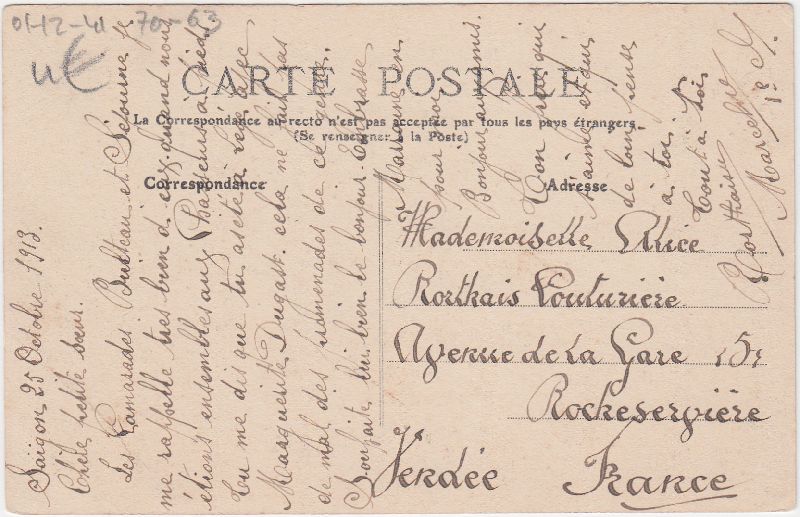 01-12-41 70-63
4€
CARTE POSTALE
La Correspondance au recto n'est pas acceptée par tous les pays étrangers
(Se renseigner à la Poste)
Correspondance
Adresse
Saïgon 25 Octobre 1913.
Chère petite sœur.
Les Camarades et Séjourné Je
me rappelle très bien d'eux quand nous
étions ensembles aux Chasseurs à pied
Tu me dis que tu as été à avec
Marguerite Dugast. cela ne fait pas
de mal des promenades de ce
Souhaite lui bien le bonjour Embrasse
Marraine en
pour moi
Bonjour aux amis.
Ton frère qui
t'aime et qui
de loin pense
à toi.
Tout à toi
Rorthais Marcel
Mademoiselle Alice
Rorthais Couturière
Avenue de la Gare 15,
Rocheservière
Vendée France